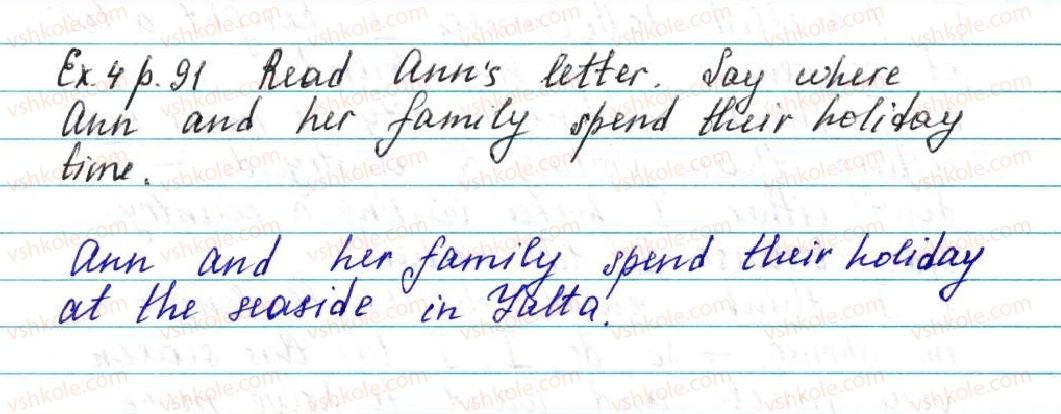 Ex. 4 p. 91 Read Ann's letter. Say where
Ann and her family spend their holiday
time.
Ann and her family spend their holiday
at the seaside in Yalta.